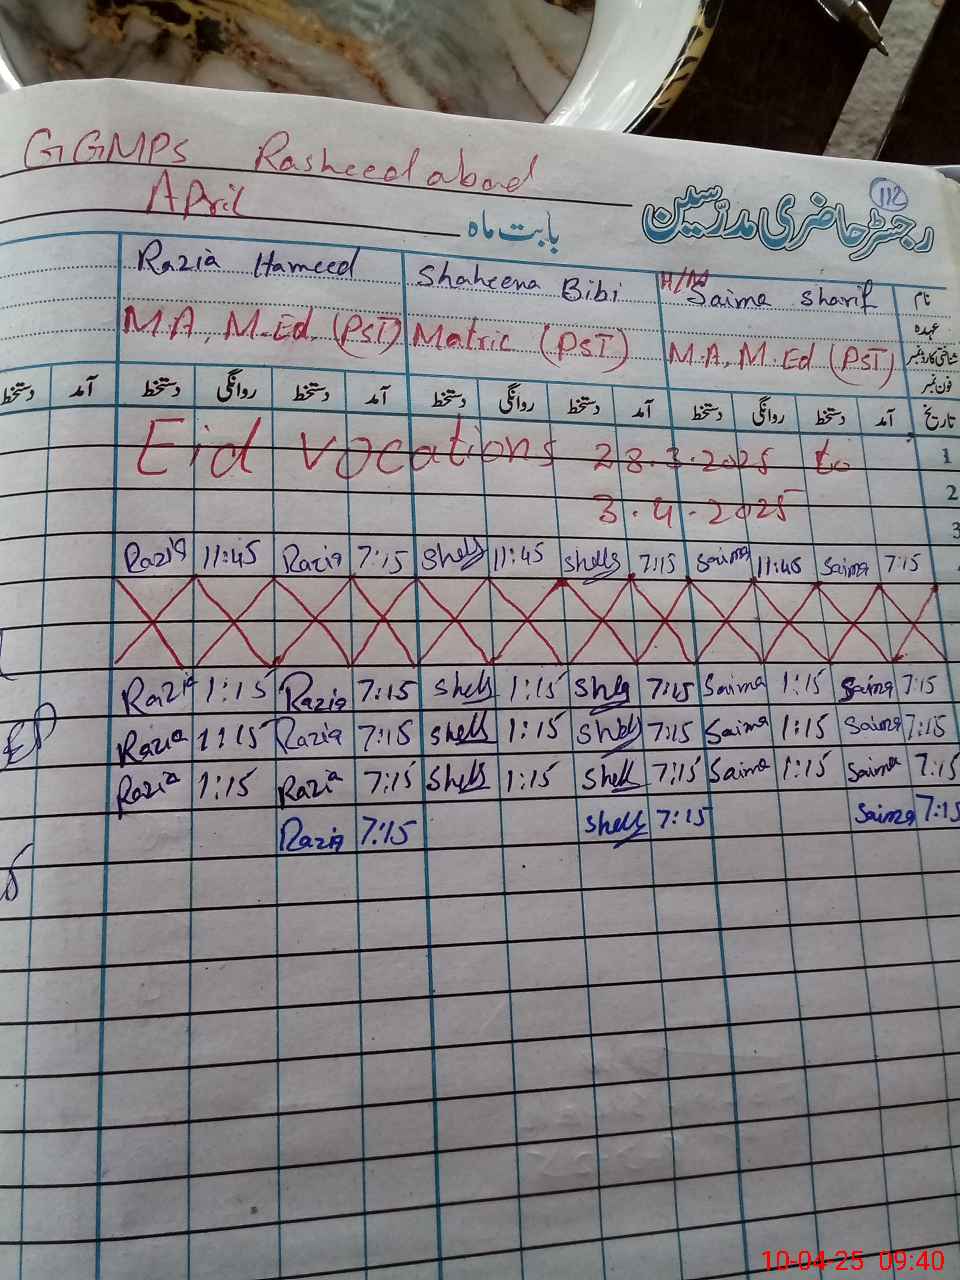 GGMPS Rasheed abad
112
April
بابت ماہ
رجسٹر حاضری مدرسین
Razia Hameed
Shaheena Bibi
H/M Saima Sharif
نام
عہدہ
M.A, M.Ed, (PST)
Matric (PST)
M.A, M.Ed (PST)
شناختی کارڈ نمبر
فون نمبر
دستخط آمد دستخط روانگی دستخط آمد دستخط روانگی دستخط آمد دستخط روانگی دستخط آمد تاریخ
Eid vocations 28.3.2025 to
1
3.4.2025
2
3
Razia 11:45 Razia 7:15 Shells 11:45 Shells 7:15 Saima 11:45 Saima 7:15
Razia 1:15 Razia 7:15 Shells 1:15 Shells 7:15 Saima 1:15 Saima 7:15
Razia 1:15 Razia 7:15 Shells 1:15 Shells 7:15 Saima 1:15 Saima 7:15
Razia 1:15 Razia 7:15 Shells 1:15 Shells 7:15 Saima 1:15 Saima 7:15
Razia 7:15 Shells 7:15 Saima 7:15
10-04-25 09:40